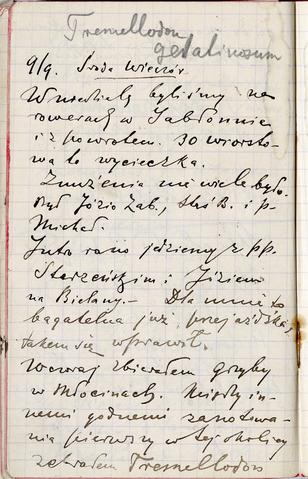 Tremellodon
gelatinosum
9/9. Środa wieczór
W niedzielę byliśmy na
rowerach w Jabłonnie
i z powrotem. 30 wiorsto-
wa to wycieczka.
Zmużenia nie wiele było.
Był Józio Zab., Staś B. i p.
Michał.
Jutro rano jedziemy z pp.
Starzeńskim i Józiem
na Bielany. — Dla mnie to
bagatelna już przejażdżka,
takem się wprawił.
Wczoraj zbierałem grzyby
w Młocinach. Między in-
nemi godnemi zanotowa-
nia pierwszy w tej okolicy
zebrałem Tremellodon